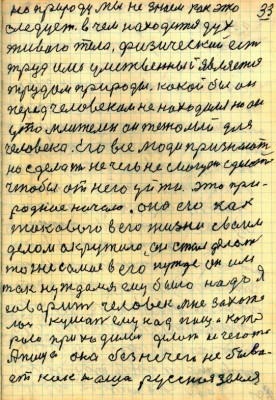 33
на природу мы не знаем как это
следует. в чем находится дух
живого тела, физический ест
труд или умственный является
трудом природы. какой бы он
перед человеком не находился но он
утомителен он тяжолый для
человека. Его все люди признают
но сделат не чего не смогли сделат
чтобы от него уйти. это при-
родное начало. оно его как
такового в его жизни своим
делом окружило, он стал делат
то же самое в его нужде он им
так нуждался ему было надо Я
говорит человек мне захоте
лос кушат ему над пища кото
рого приходилос
А пища она без ничего не быва-
ет как наша русская земля